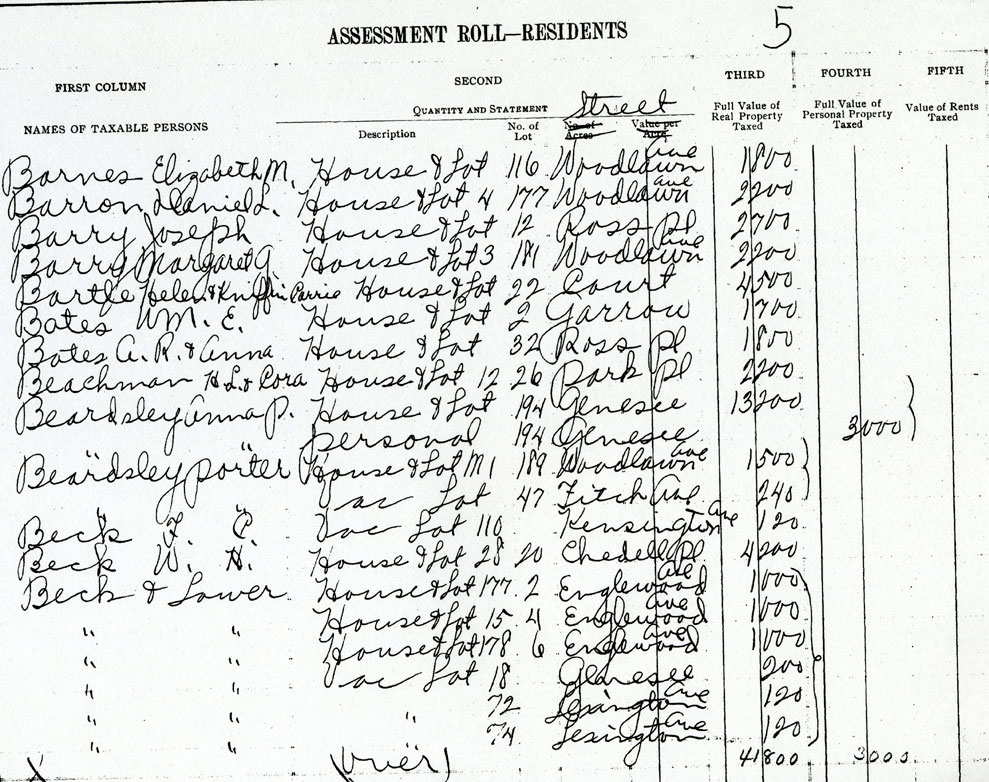 5
ASSESSMENT ROLL—RESIDENTS
FIRST COLUMN SECOND THIRD FOURTH FIFTH
NAMES OF TAXABLE PERSONS QUANTITY AND STATEMENT Street Full Value of Real Property Taxed Full Value of Personal Property Taxed Value of Rents Taxed
Description No. of Lot No. of Acres Value per Acre
Barnes Elizabeth M. House & Lot 116 Woodlawn Ave 1800
Barron Daniel L. House & Lot 4 177 Woodlawn Ave 2200
Barry Joseph House & Lot 12 Ross Pl 2700
Barry Margaret G. House & Lot 3 181 Woodlawn Ave 2200
Bartle Helen & Kniffin Carrie House & Lot 22 Court 4500
Bates WM. E. House & Lot 2 Garrow 1700
Bates A. R. & Anna House & Lot 32 Ross Pl 1800
Beachman H. L. & Cora House & Lot 12 26 Park Pl 2200
Beardsley Anna P. House & Lot 194 Genesee 13200
personal 194 Genesee 3000
Beardsley Porter House & Lot M1 189 Woodlawn Ave 1500
Vac Lot 47 Fitch Ave 240
Beck F. C. Vac Lot 110 Kensington Ave 120
Beck W. H. House & Lot 28 20 Chedell Pl 4200
Beck & Lower House & Lot 177 2 Englewood Ave 1000
" " House & Lot 15 4 Englewood Ave 1000
" " House & Lot 178 6 Englewood Ave 1000
" " Vac Lot 18 200
" " " 72 Lexington Ave 120
" " 74 Lexington Ave 120
(over) 41800 3000